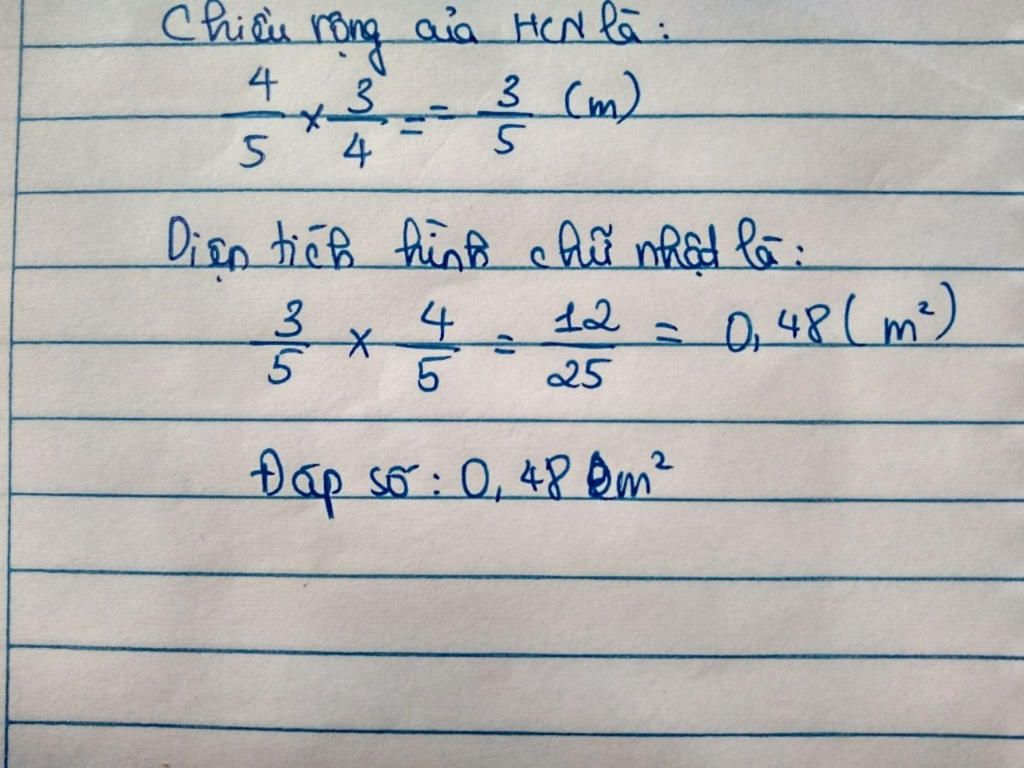 Chiều rộng của HCN là:
4/5 × 3/4 = = 3/5 (m)
Diện tích hình chữ nhật là:
3/5 × 4/5 = 12/25 = 0,48 ( m²)
Đáp số: 0,48 m²